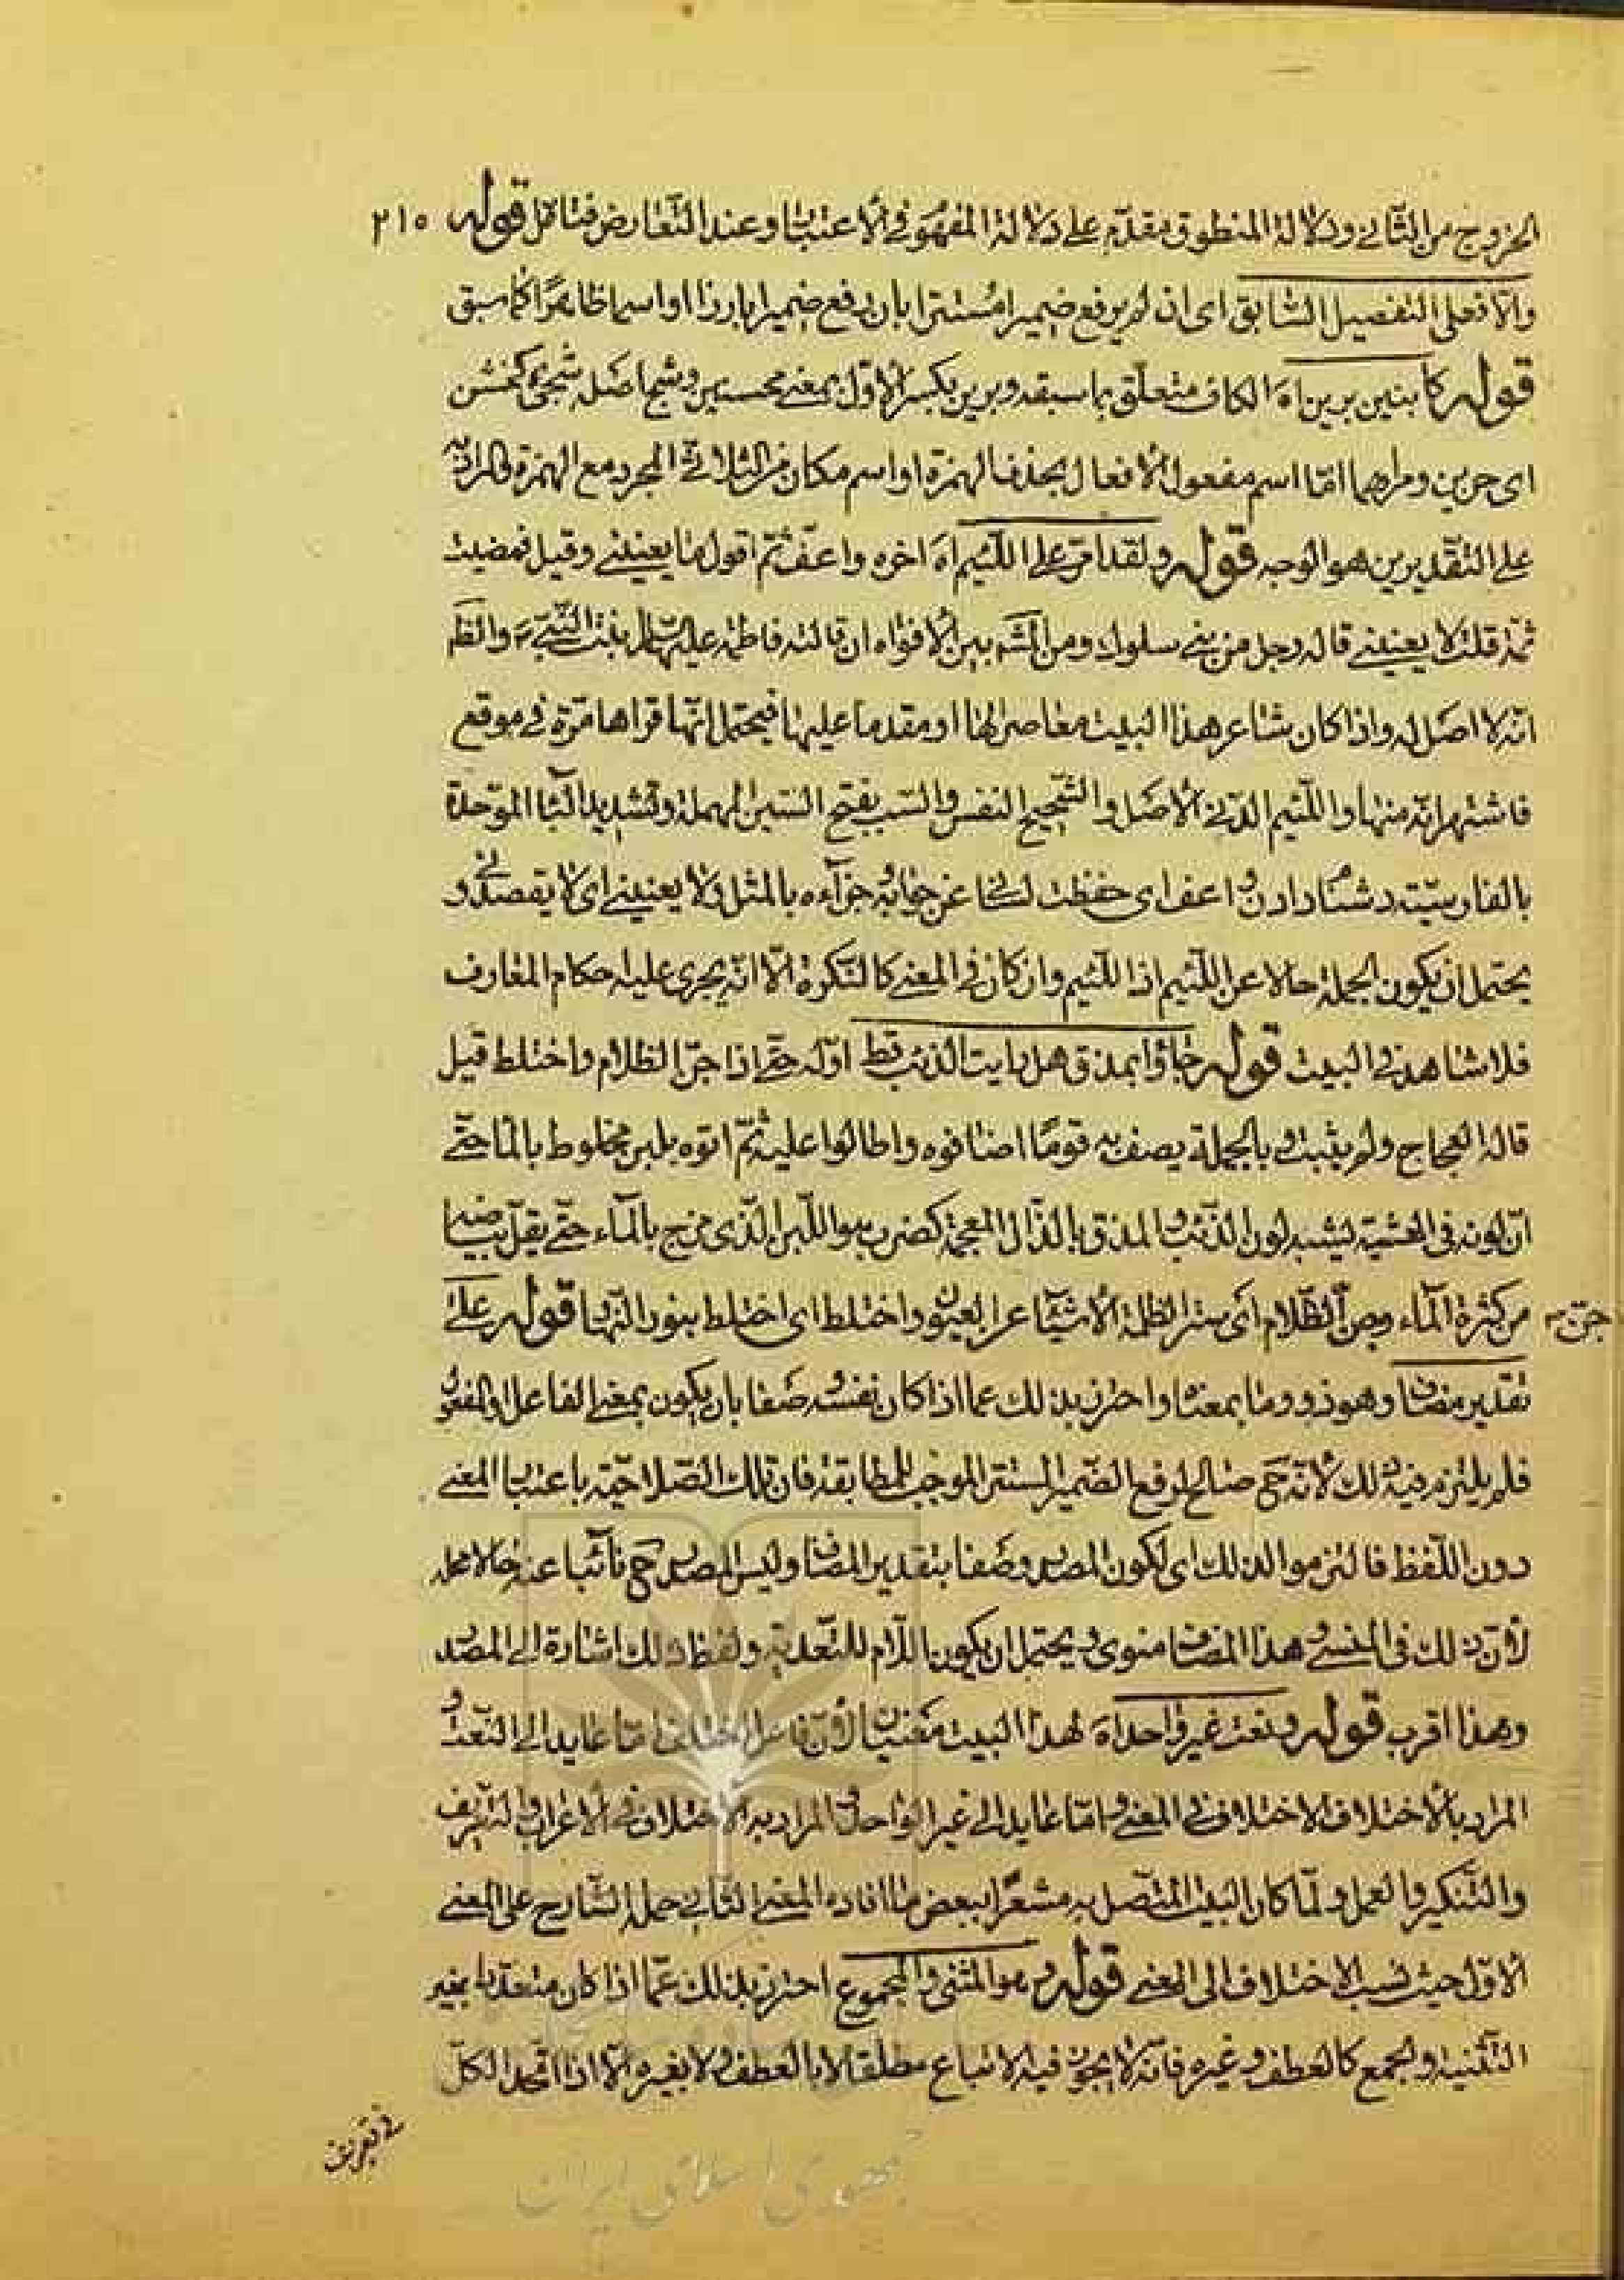 الخروج من الثاني ودلالة المنطوق مقدم على دلالة المفهوم في الاعتبار وعند التعارض فتأمل قوله ٢١٥
والا فعلى التفصيل السابق اى ان لم يرفع ضميرا مستترا بان رفع ضميرا بارزا او اسما ظاهرا كما سبق
قوله كابنين برين اه الكاف متعلق بما سبقه وبرين بكسر الاول بمعنى محسنين وشج اصله شجى كخشن
اى حزين ومراهما اما اسم مفعول الافعال بحذف الهمزة او اسم مكان من الثلاثى المجرد مع الهمزة
على التقديرين هو الوجه قوله ولقد امر على اللئيم اه اخره واعف ثم اقول ما يعنيني وقيل فمضيت
ثمة قلت لا يعنيني قاله رجل من بنى سلول ومن المشهور بين الافواه ان قائلته فاطمة عليها السلام بنت النبي ص والظ
انه لا اصل له واذا كان شاعر هذا البيت معاصرا لها او مقدما عليها فيحتمل انها قراها مرة في موقع
فاشتهر انه منها واللئيم الدنى الاصل والشحيح النفس والسب بفتح السين المهملة وتشديد الباء الموحدة
بالفارسية دشنام دادن و اعف اى حفظت لسانى عن جوابه وجزاءه بالمثل ولا يعنيني اى لا يقصدنى و
يحتمل ان يكون الجملة حالا عن اللئيم اذ اللئيم وان كان في المعنى كالنكرة الا انه يجرى عليه احكام المعارف
فلا شاهد في البيت قوله جاؤا بمذق هل رايت الذئب قط اوله حتى اذا جن الظلام واختلط قيل
قاله العجاج ولم يثبت و بالجملة يصف به قوما اضافوه واطالوا عليه ثم اتوه بلبن مخلوط بالماء حتى
ان لونه في العشية يشبه لون الذئب و المذق بالذال المعجمة كضرب هو اللبن الذى مزج بالماء حتى يقل بياضه
من كثرة الماء وجن الظلام اى ستر الظلمة الاشياء عن العيون واختلط اى اختلط بنور النهار قوله على
جن
تقدير مضاف وهو ذو وما بمعناه واحترز بذلك عما اذا كان نفسه صفة بان يكون بمعنى الفاعل او المفعول
فلم يلتزم فيه ذلك لانه ح صالح لرفع الضمير المستتر الموجب للمطابقة فان تلك الصلاحية باعتبار المعنى
دون اللفظ فالتزموا لذلك اى لكون المصدر وصفا بتقدير المضاف وليس المصدر ح نائبا عنه حالا محله
لان ذلك في المنسى و هذا المضاف منوى و يحتمل ان يكون اللام للتعدية ولفظ ذلك اشارة الى المصدر
وهذا اقرب قوله ونعت غير واحد اه لهذا البيت معنيان لان فاعل اختلف اما عايد الى النعت و
المراد بالاختلاف الاختلاف في المعنى و اما عايد الى غير الواحد و المراد به الاختلاف في الاعراب و التعريف
والتنكير والعمل ولما كان البيت المتصل به مشعرا ببعض ما افاده المعنى الثاني حمل الشارح على المعنى
الاول حيث نسب الاختلاف الى المعنى قوله وهو المثنى والمجموع احترز بذلك عما اذا كان متعددا بغير
التثنية والجمع كالعطف وغيره فانه لا يجوز فيه الاتباع مطلقا لا بالعطف ولا بغيره الا اذا اتحد الكل
جمهوری اسلامی ایران